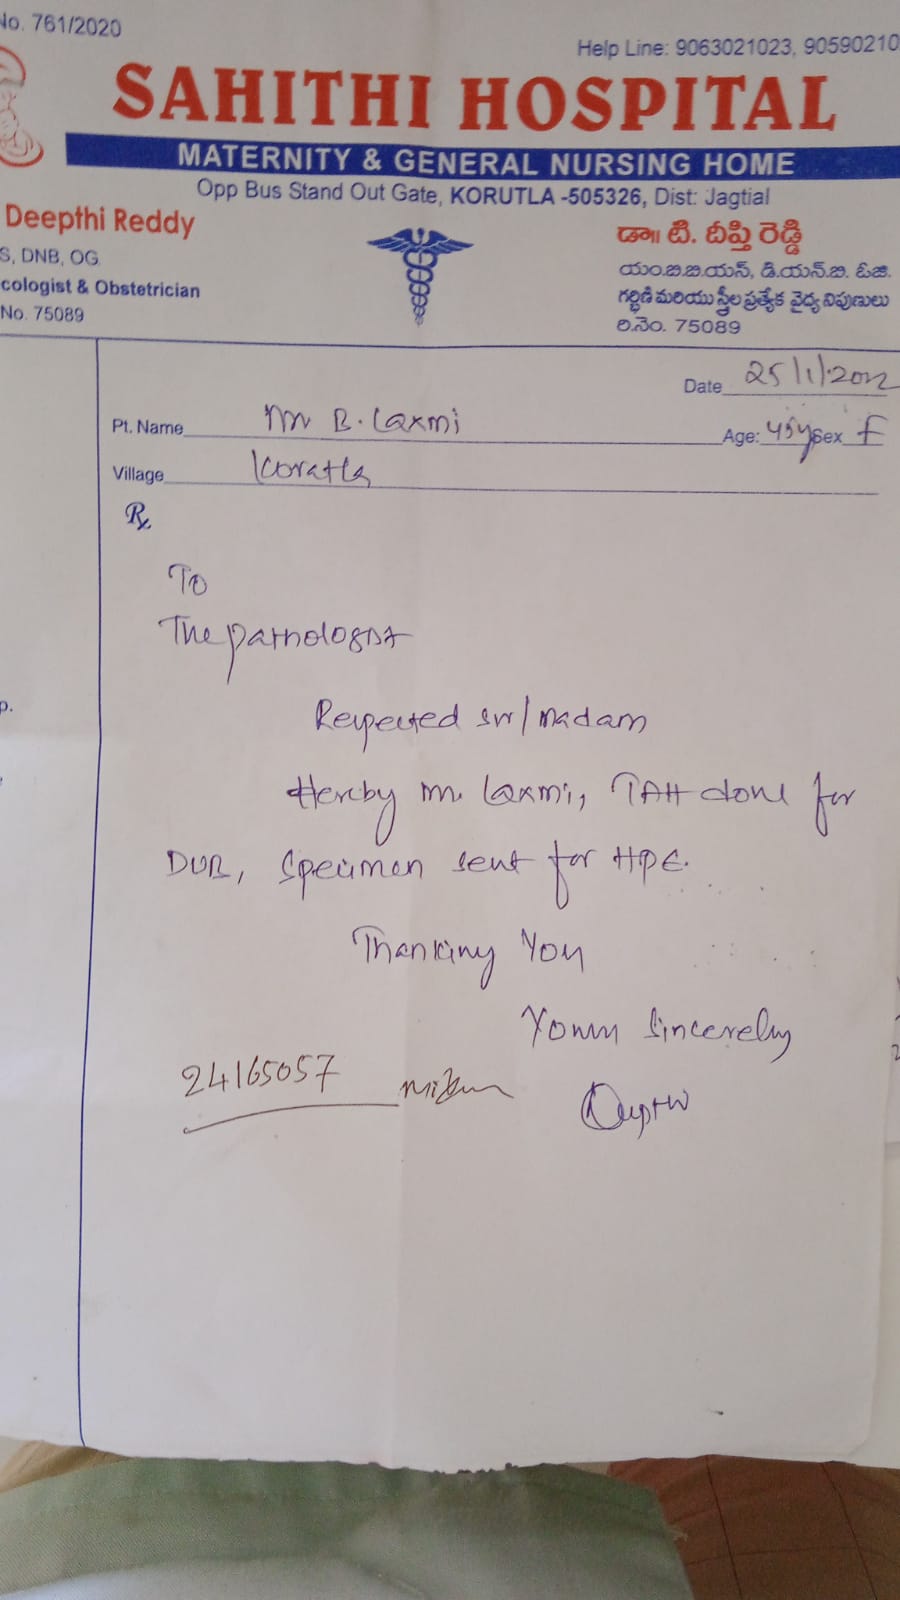 No. 761/2020
Help Line: 9063021023, 90590210
SAHITHI HOSPITAL
MATERNITY & GENERAL NURSING HOME
Opp Bus Stand Out Gate, KORUTLA -505326, Dist: Jagtial
Deepthi Reddy
S, DNB, OG
cologist & Obstetrician
No. 75089
డా॥ టి. దీప్తి రెడ్డి
యం.బి.బి.యస్, డి.యన్.బి. ఓజి.
గర్భిణి మరియు స్త్రీల ప్రత్యేక వైద్య నిపుణులు
రి.నెం. 75089
Date 25/1/2022
Pt. Name Mr B. Laxmi
Age: 45y Sex F
Village Koratla
Rx
To
The pathologist
Respected sir/madam
Hereby Mr. Laxmi, TAH done for
DUB, Specimen sent for HPE.
Thanking You
Yours Sincerely
24165057
p.